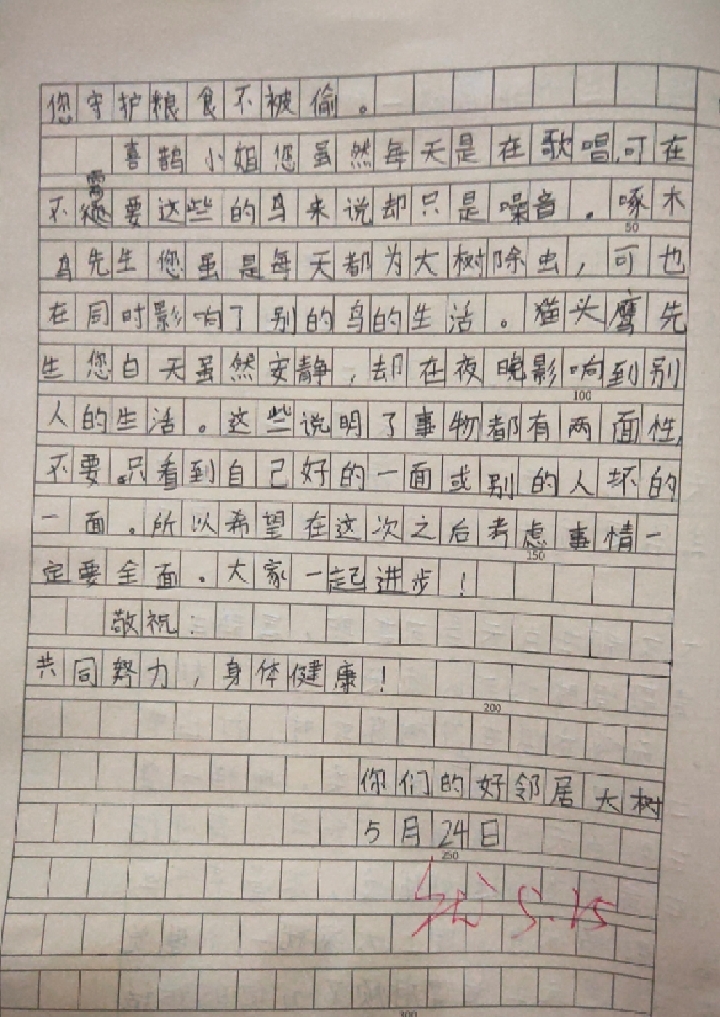 您守护粮食不被偷。
喜鹊小姐您虽然每天是在歌唱,可在
不需要这些的鸟来说却只是噪音。啄木
50
鸟先生您虽是每天都为大树除虫,可也
在同时影响了别的鸟的生活。猫头鹰先
生您白天虽然安静,却在夜晚影响到别
100
人的生活。这些说明了事物都有两面性,
不要只看到自己好的一面或别的人坏的
一面。所以希望在这次之后考虑事情一
150
定要全面。大家一起进步!
敬祝:
共同努力,身体健康!
200
你们的好邻居大树
5月24日
250
5.25
300